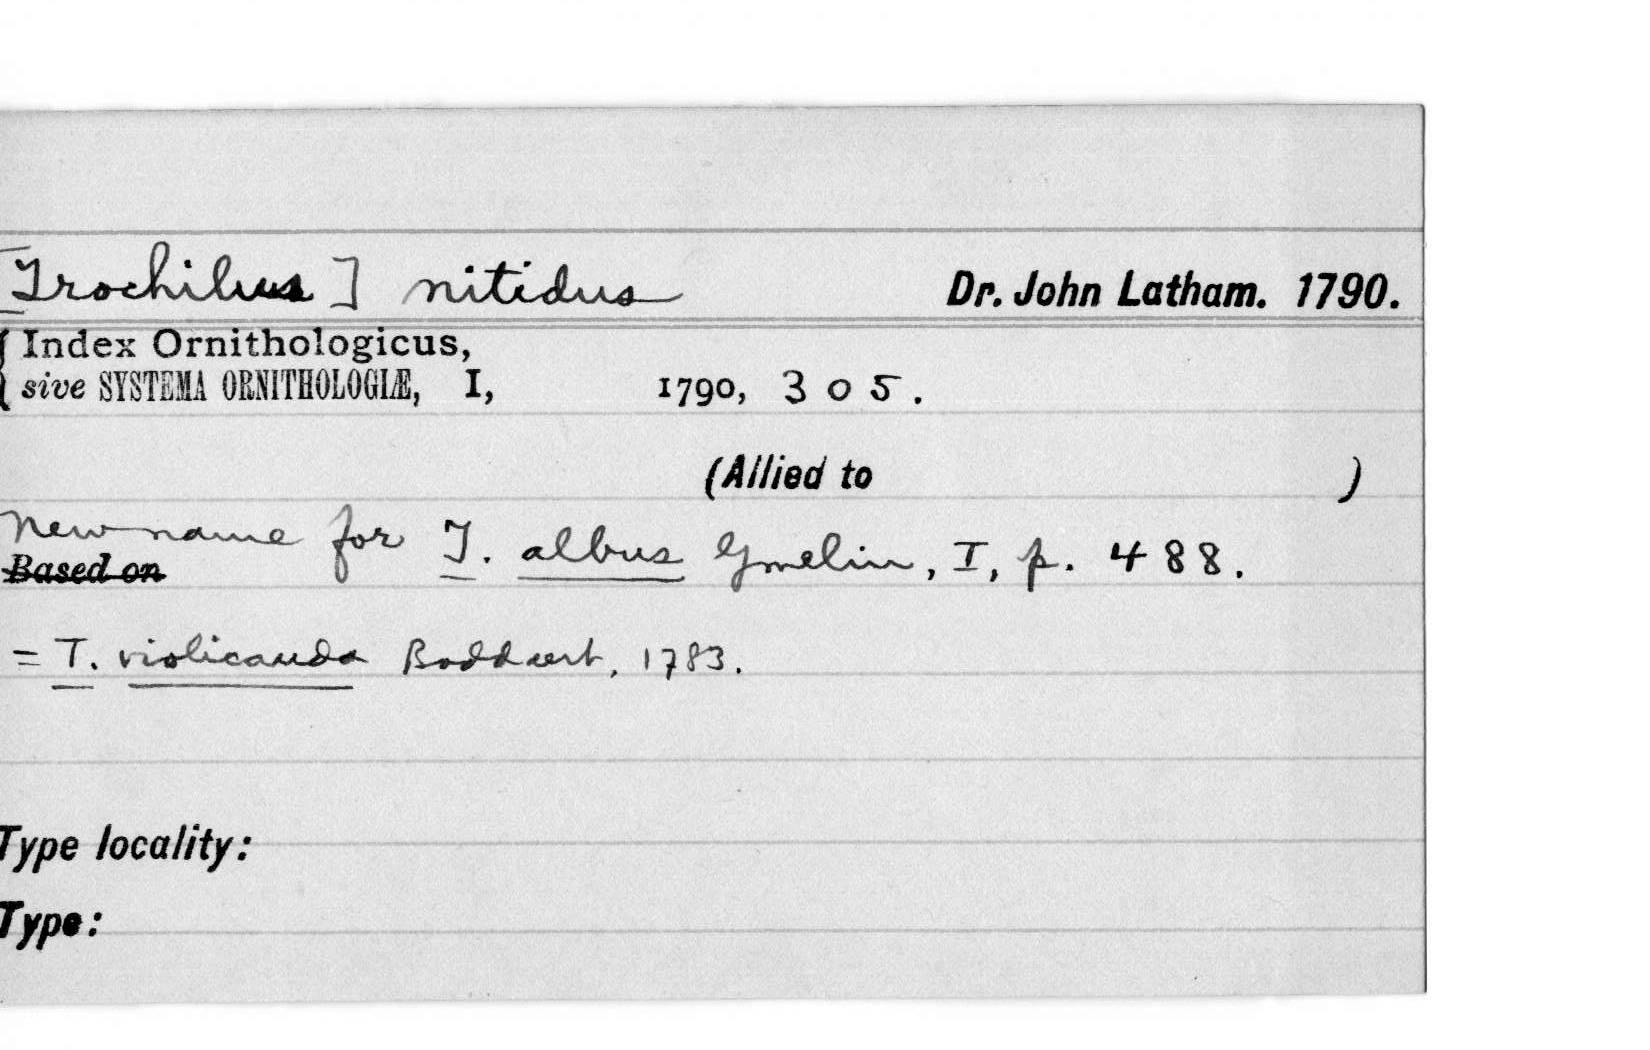 [Trochilus] nitidus Dr. John Latham. 1790.
Index Ornithologicus,
sive SYSTEMA ORNITHOLOGIÆ, I, 1790, 305.
(Allied to )
New name for T. albus Gmelin, I, p. 488.
Based on
= T. violicauda Boddaert, 1783.
Type locality:
Type: